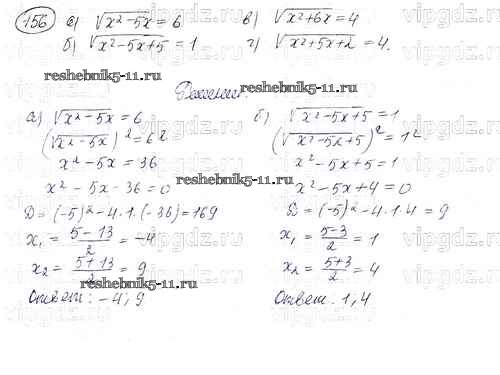 156 а) √(x²-5x) = 6 в) √(x²+6x) = 4
б) √(x²-5x+5) = 1 г) √(x²+5x+2) = 4.
reshebnik5-11.ru
reshebnik5-11.ru
Решение.
а) √(x²-5x) = 6
(√(x²-5x))² = 6²
x²-5x = 36
x²-5x-36 = 0
D = (-5)²-4·1·(-36) = 169
x₁ = (5-13)/2 = -4
x₂ = (5+13)/2 = 9
Ответ: -4; 9
б) √(x²-5x+5) = 1
(√(x²-5x+5))² = 1²
x²-5x+5 = 1
x²-5x+4 = 0
D = (-5)²-4·1·4 = 9
x₁ = (5-3)/2 = 1
x₂ = (5+3)/2 = 4
Ответ: 1, 4
reshebnik5-11.ru
reshebnik5-11.ru
vipgdz.ru